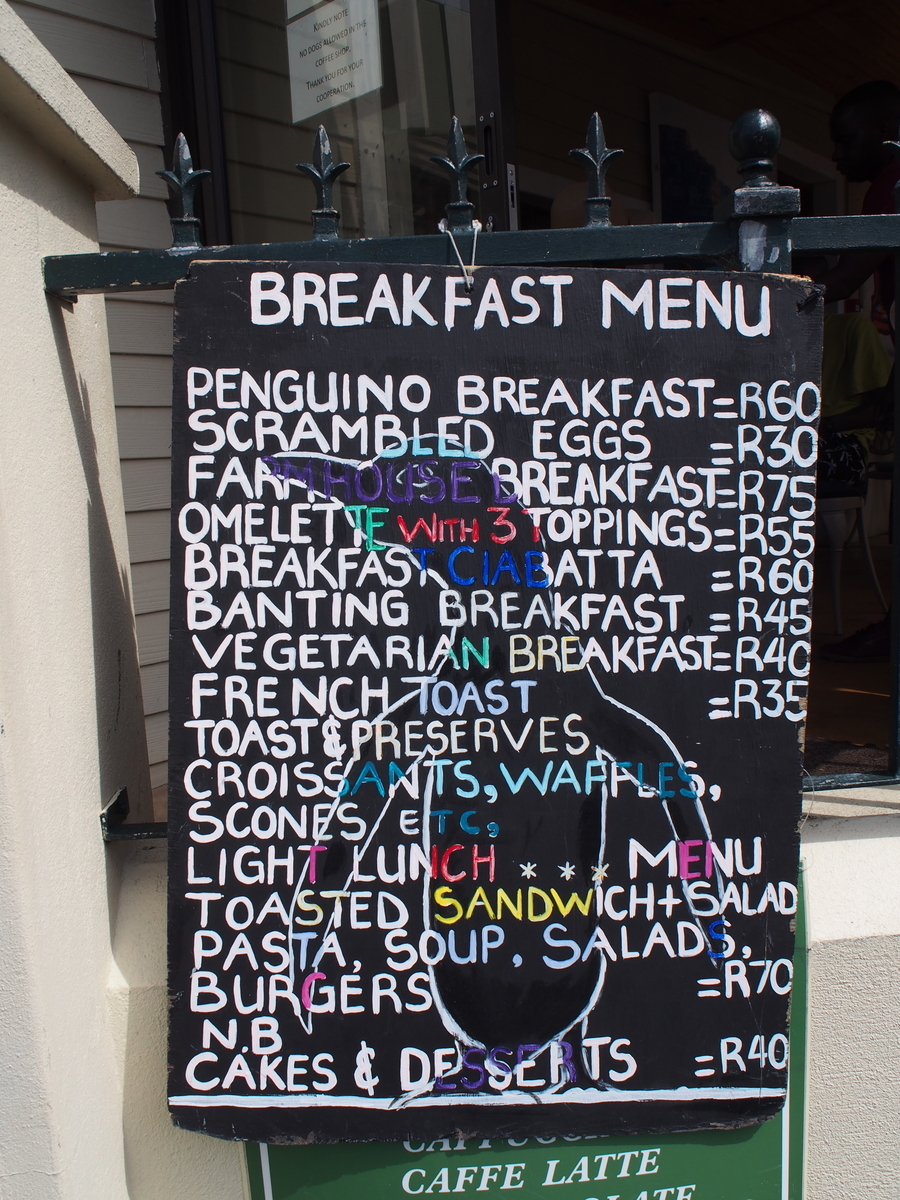 KINDLY NOTE
NO DOGS ALLOWED IN THE
COFFEE SHOP.
THANK YOU FOR YOUR
COOPERATION.
BREAKFAST MENU
PENGUINO BREAKFAST=R60
SCRAMBLED EGGS =R30
FARMHOUSE BREAKFAST=R75
OMELETTE WITH 3 TOPPINGS=R55
BREAKFAST CIABATTA =R60
BANTING BREAKFAST =R45
VEGETARIAN BREAKFAST=R40
FRENCH TOAST =R35
TOAST & PRESERVES
CROISSANTS, WAFFLES,
SCONES ETC,
LIGHT LUNCH *** MENU
TOASTED SANDWICH + SALAD
PASTA, SOUP, SALADS,
BURGERS =R70
N.B
CAKES & DESSERTS =R40
CAFFE LATTE